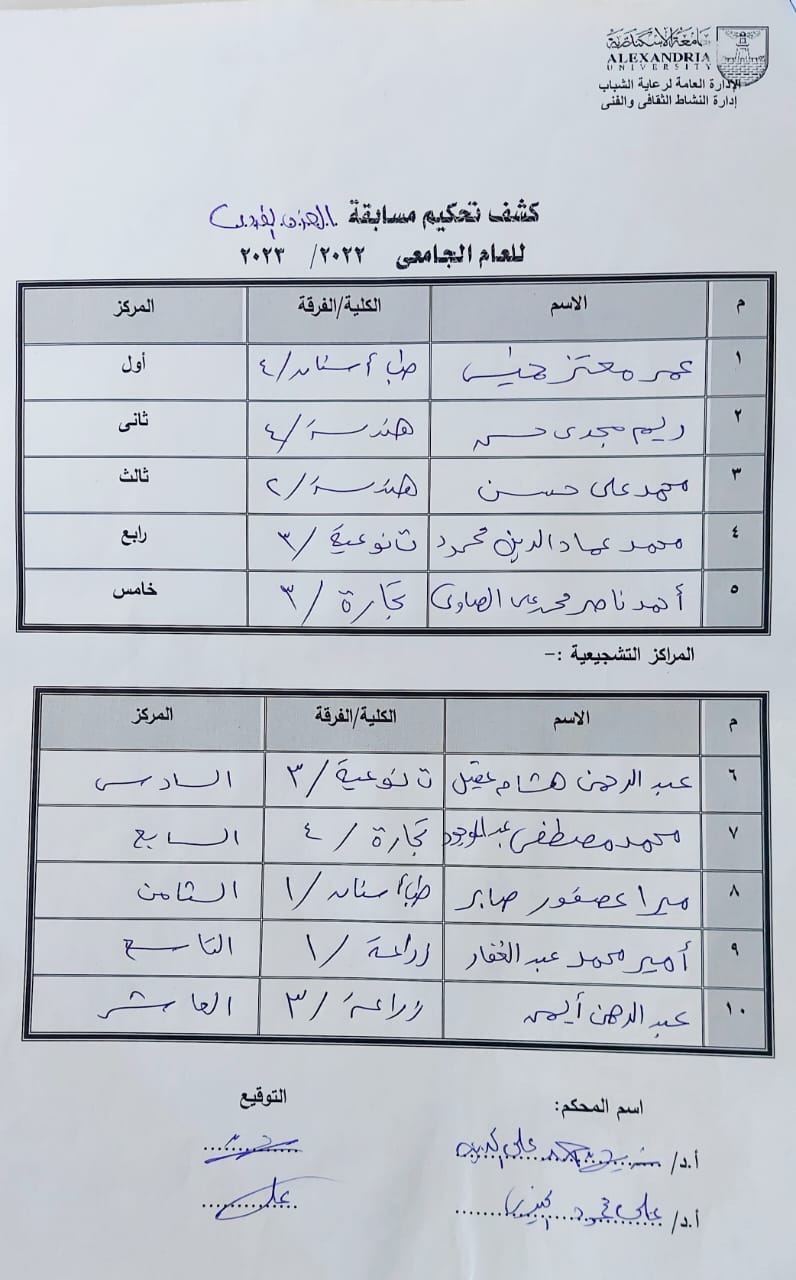 جامعة الإسكندرية
ALEXANDRIA
UNIVERSITY
الإدارة العامة لرعاية الشباب
إدارة النشاط الثقافى والفنى
كشف تحكيم مسابقة العزف الفردى
للعام الجامعى ٢٠٢٢/ ٢٠٢٣
م الاسم الكلية/الفرقة المركز
١ عمر معتز طب أسنان/٤ أول
٢ ريم مجدى حسن هندسة/٤ ثانى
٣ محمد على حسن هندسة/٢ ثالث
٤ محمد عماد الدين محمود ت نوعية/٣ رابع
٥ أحمد ناصر محمد على الصاوى تجارة/٣ خامس
المراكز التشجيعية :-
م الاسم الكلية/الفرقة المركز
٦ عبد الرحمن هشام عقيل ت نوعية/٣ السادس
٧ محمد مصطفى عبد الموجود تجارة/٤ السابع
٨ ميرا عصفور صابر طب أسنان/١ الثامن
٩ أمير محمد عبد الغفار زراعة/١ التاسع
١٠ عبد الرحمن أيمن زراعة/٣ العاشر
اسم المحكم: التوقيع
أ.د/
أ.د/ على محمود على